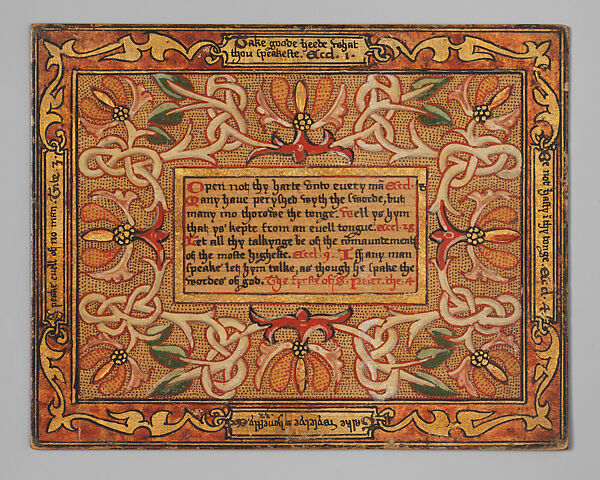 Take goode heede what
thou speakeste. Eccl. 5.
Open not thy harte vnto euery mã Eccl.
Many haue peryshed wyth the sworde, but
many mo thorowe the tonge. Well ys hym
that ys kepte from an euell tongue. eccl. 28
Let all thy talkynge be of the cõmaundement
of the moste higheste. Eccl. 9. Iff any man
speake let hym talke, as though he spake the
wordes of god. The fyrste of S. Peter. the. 4
Be not hasty i thy tonge. Eccl. 4
speake euell of no man. Tit. 3.